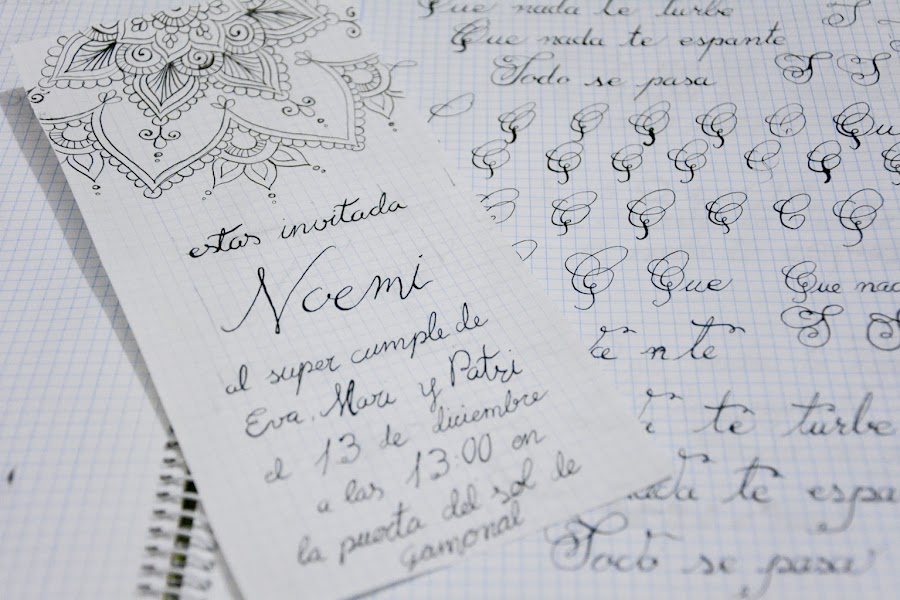 estas invitada
Noemi
al super cumple de
Eva, Mari y Patri
el 13 de diciembre
a las 13:00 en
la puerta del sol de
gamonal
Que nada te turbe
Que nada te espante
Todo se pasa
Que
Que nad
te nte
te turbe
nada te espa
Todo se pasa